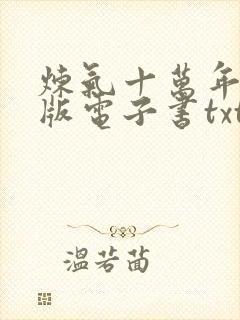 煉氣十萬年
版電子書txt
溫若茴